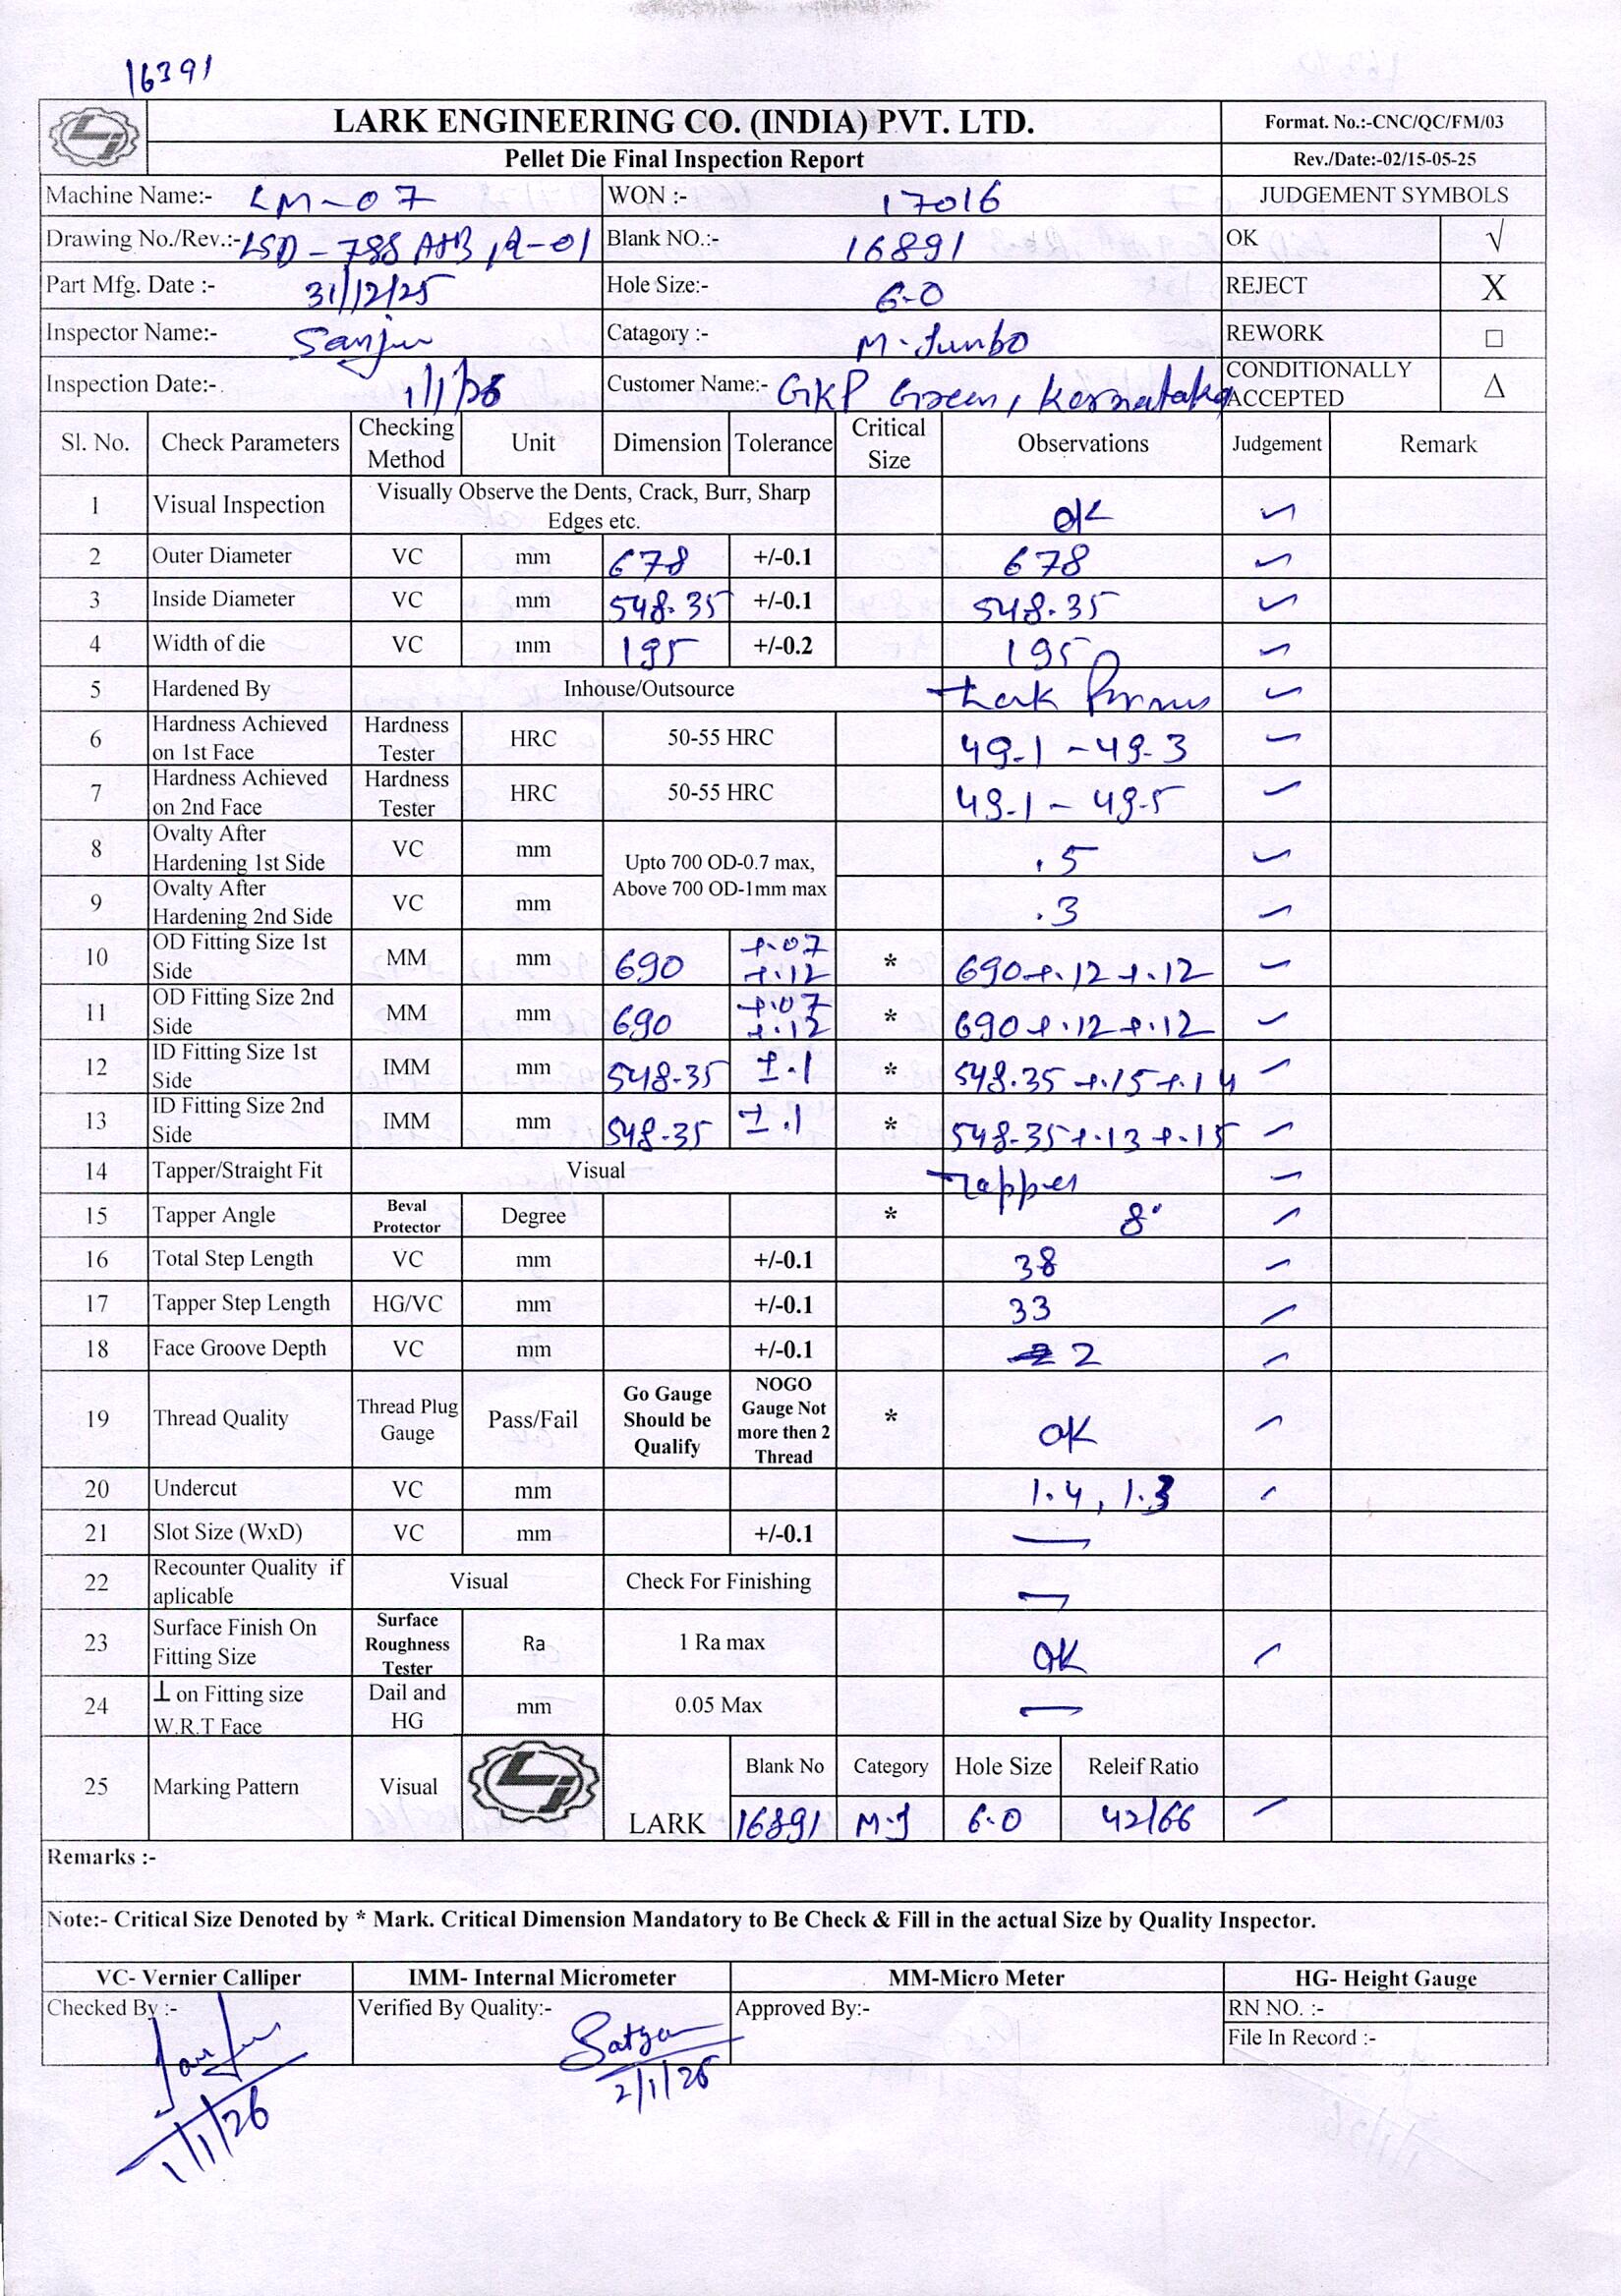 16391
LARK ENGINEERING CO. (INDIA) PVT. LTD.
Format. No.:-CNC/QC/FM/03
Pellet Die Final Inspection Report
Rev./Date:-02/15-05-25
Machine Name:- LM-07 WON :- 17016 JUDGEMENT SYMBOLS
Drawing No./Rev.:- LSD-788 A&B, R-01 Blank NO.:- 16891 OK √
Part Mfg. Date :- 31/12/25 Hole Size:- 6.0 REJECT X
Inspector Name:- Sanju Catagory :- M-Jumbo REWORK □
Inspection Date:- 1/1/26 Customer Name:- GKP Green, Karnataka CONDITIONALLY ACCEPTED △
Sl. No. Check Parameters Checking Method Unit Dimension Tolerance Critical Size Observations Judgement Remark
1 Visual Inspection Visually Observe the Dents, Crack, Burr, Sharp Edges etc. OK ✓
2 Outer Diameter VC mm 678 +/-0.1 678 ✓
3 Inside Diameter VC mm 548.35 +/-0.1 548.35 ✓
4 Width of die VC mm 195 +/-0.2 195 ✓
5 Hardened By Inhouse/Outsource Lark ✓
6 Hardness Achieved on 1st Face Hardness Tester HRC 50-55 HRC 49.1 - 49.3 ✓
7 Hardness Achieved on 2nd Face Hardness Tester HRC 50-55 HRC 49.1 - 49.5 ✓
8 Ovalty After Hardening 1st Side VC mm Upto 700 OD-0.7 max, Above 700 OD-1mm max .5 ✓
9 Ovalty After Hardening 2nd Side VC mm .3 ✓
10 OD Fitting Size 1st Side MM mm 690 +.07 +.12 * 690+.12 +.12 ✓
11 OD Fitting Size 2nd Side MM mm 690 +.07 +.12 * 690+.12 +.12 ✓
12 ID Fitting Size 1st Side IMM mm 548.35 ±.1 * 548.35 +.15 +.14 ✓
13 ID Fitting Size 2nd Side IMM mm 548.35 ±.1 * 548.35+.13 +.15 ✓
14 Tapper/Straight Fit Visual Tapper ✓
15 Tapper Angle Beval Protector Degree * 8° ✓
16 Total Step Length VC mm +/-0.1 38 ✓
17 Tapper Step Length HG/VC mm +/-0.1 33 ✓
18 Face Groove Depth VC mm +/-0.1 2 ✓
19 Thread Quality Thread Plug Gauge Pass/Fail Go Gauge Should be Qualify NOGO Gauge Not more then 2 Thread * OK ✓
20 Undercut VC mm 1.4, 1.3 ✓
21 Slot Size (WxD) VC mm +/-0.1 —
22 Recounter Quality if aplicable Visual Check For Finishing —
23 Surface Finish On Fitting Size Surface Roughness Tester Ra 1 Ra max OK ✓
24 ⊥ on Fitting size W.R.T Face Dail and HG mm 0.05 Max —
25 Marking Pattern Visual LARK Blank No Category Hole Size Releif Ratio
16891 M.J 6.0 42/66 ✓
Remarks :-
Note:- Critical Size Denoted by * Mark. Critical Dimension Mandatory to Be Check & Fill in the actual Size by Quality Inspector.
VC- Vernier Calliper IMM- Internal Micrometer MM-Micro Meter HG- Height Gauge
Checked By :- Sanju Verified By Quality:- Satya Approved By:- RN NO. :-
File In Record :-
1/1/26 2/1/26